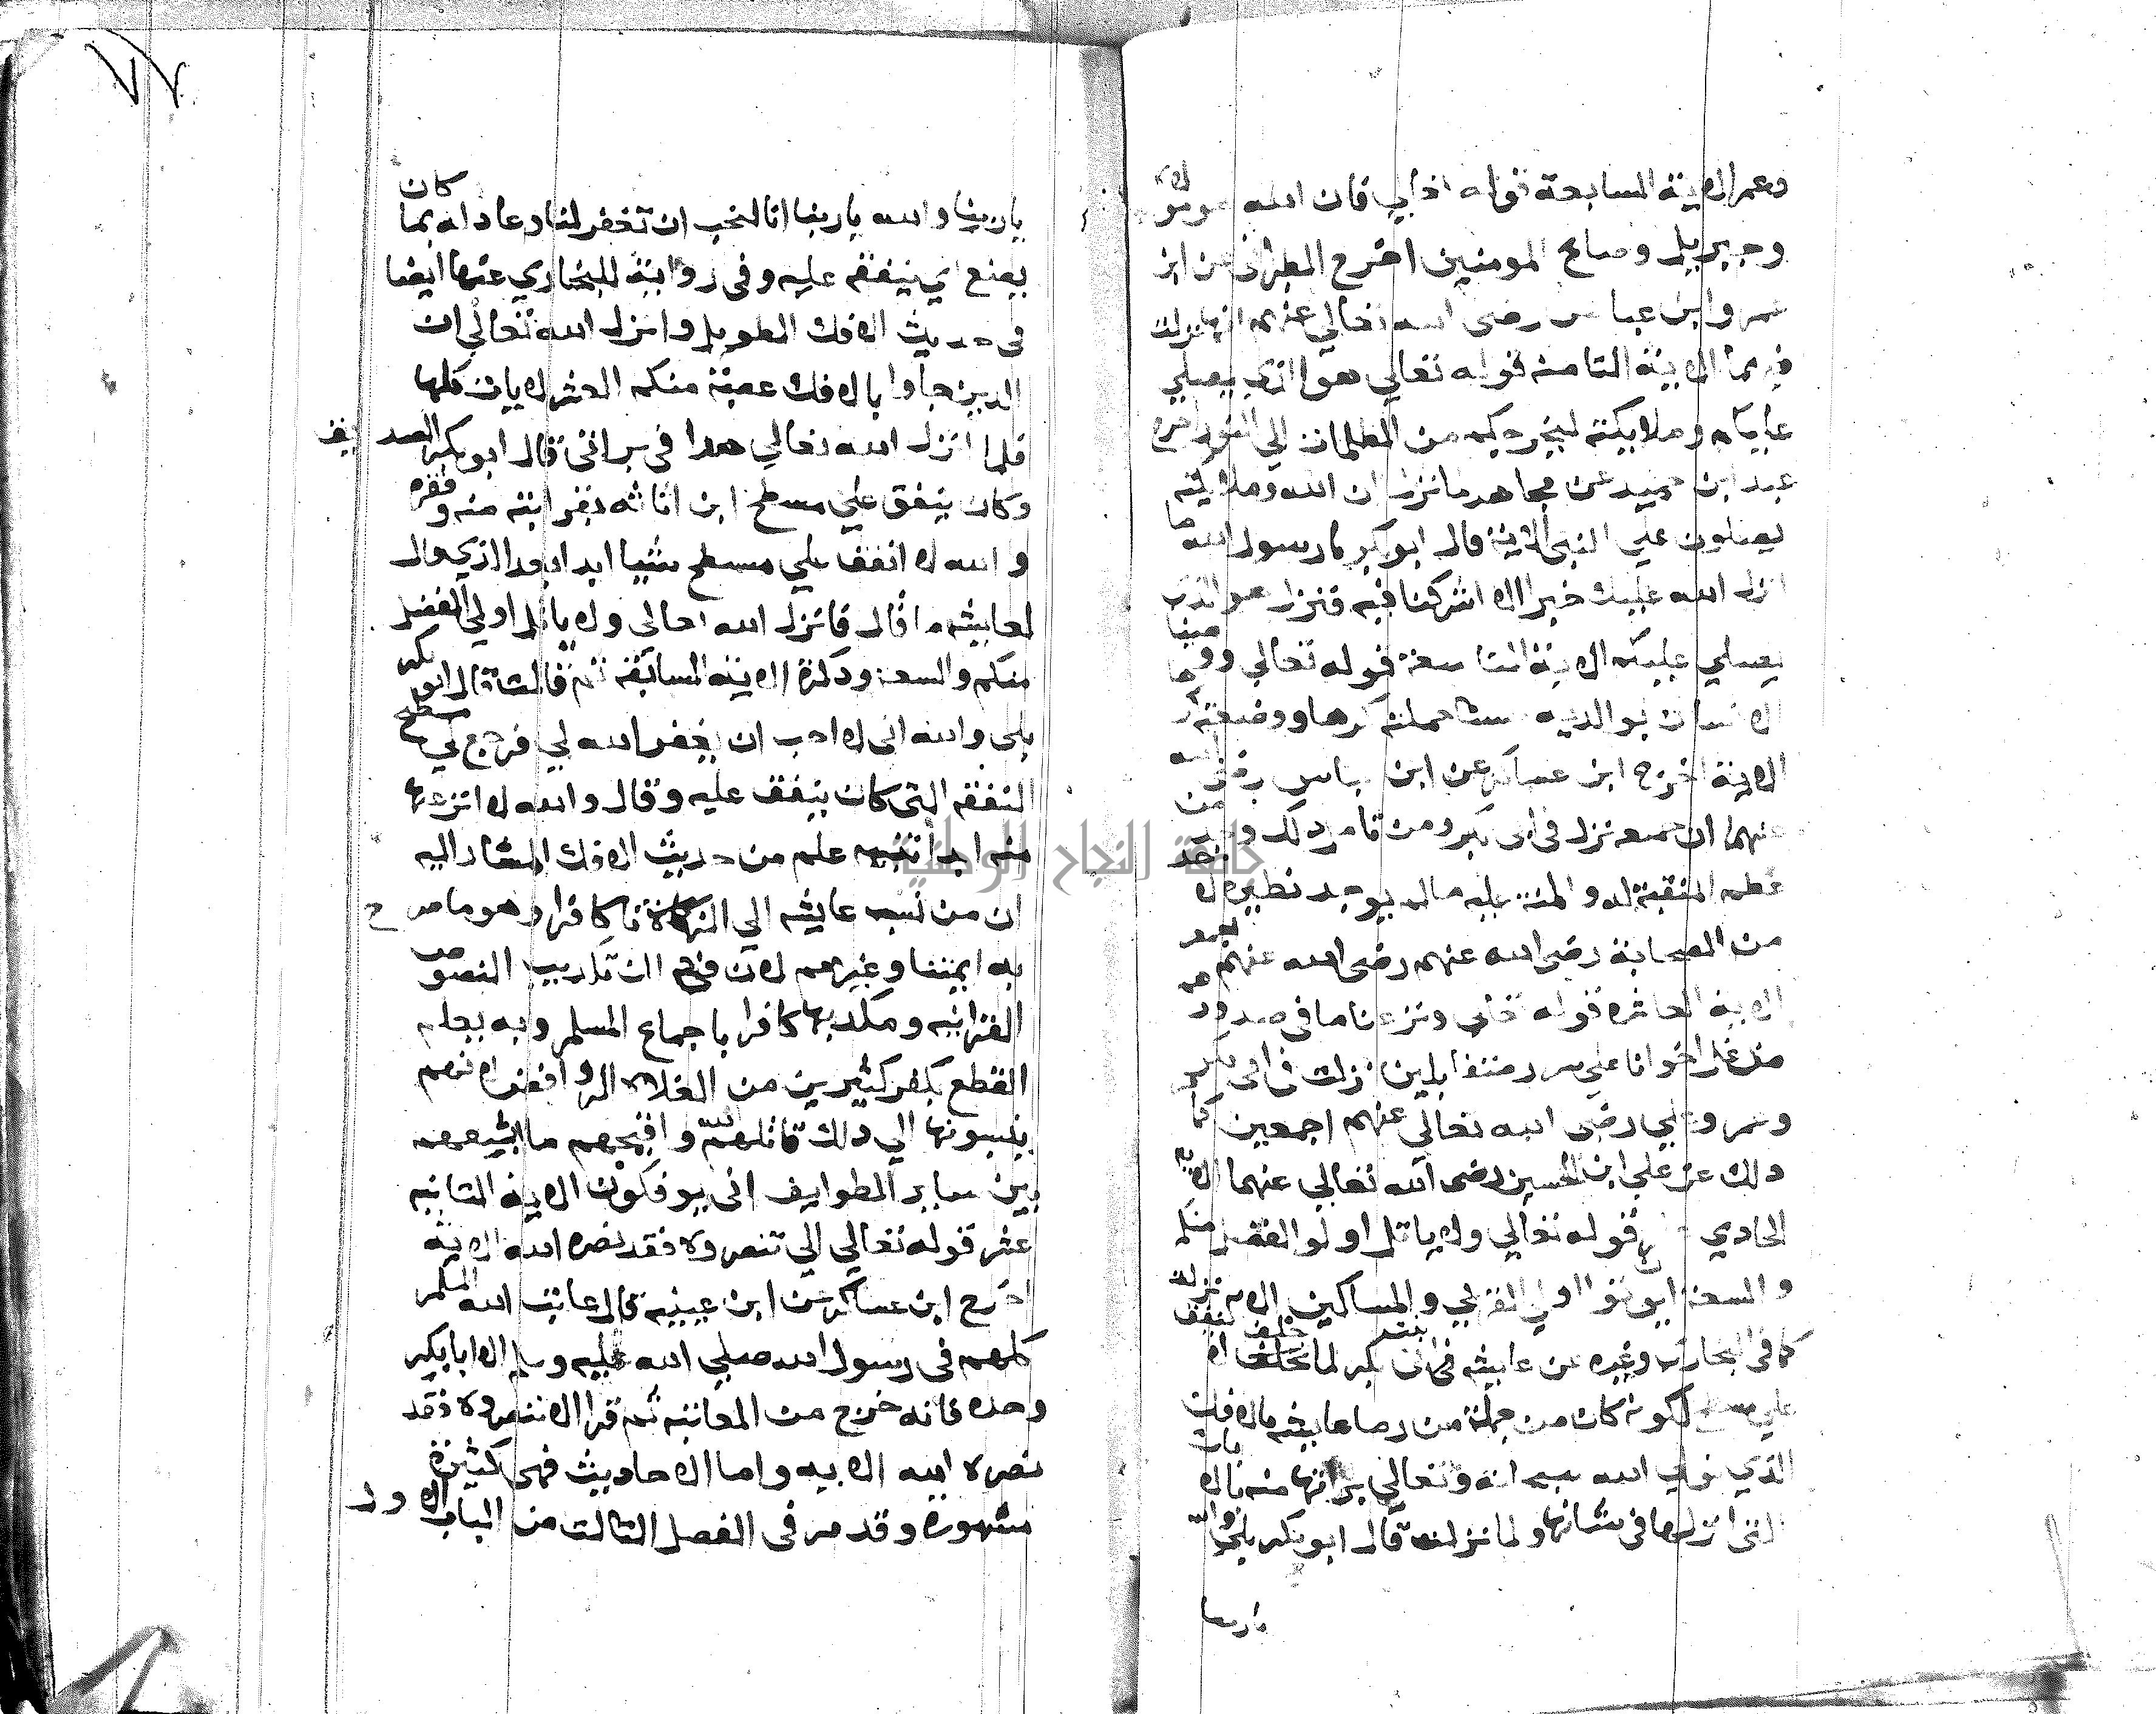 وعمر الاية السابعة قوله تعالي فان الله هو مولاه
وجبريل وصالح المومنين اخرج الطبراني عن ابن
عمر وابن عباس رضي الله تعالي عنهم انها نزلت
فيهما الاية الثامنه قوله تعالي هو الذي يصلي
عليكم وملايكته ليخرجكم من الظلمات الي النور اخرج
عبد ابن حميد عن مجاهد ما نزل ان الله وملايكته
يصلون علي النبي الاية قال ابو بكر يا رسول الله ما
انزل الله عليك خيرا الا اشركنا فيه فنزل هو الذي
يصلي عليكم الاية التاسعة قوله تعالي ووصينا
الانسان بوالديه حسنا حملته كرها ووضعته كرها
الاية اخرج ابن عساكر عن ابن عباس رضي الله
عنهما ان جميعه نزل في ابي بكر ومن تامل ذلك وجد من
عظم المنقبة له والمنة عليه مالم يوجد نظيره لاحد
من الصحابة رضي الله عنهم رضي الله عنهم
الاية العاشره قوله تعالي ونزعنا ما في صدورهم
من غل اخوانا علي سرر متقابلين نزلت في ابي بكر
وعمر وعلي رضي الله تعالي عنهم اجمعين كما
ذلك عن علي ابن الحسين رضي الله تعالي عنهما الاية
الحادي عشر قوله تعالي ولا ياتل اولوا الفضل منكم
والسعة ان يوتوا اولي القربي والمساكين الاية نزلت
كما في البخاري وغيره عن عايشه في ابي بكر لما حلف ان لا ينفق
علي مسطح لكونه كان من جملة من رما عايشه بالافك
الذي تولي الله سبحانه وتعالي براتها منه بالايات
التي انزلها في شانها ولما نزلت قال ابو بكر بلي والله
ياربنا
٧٧
ياربنا والله ياربنا انا لنحب ان تغفر لنا وعاد له بما كان
يصنع اي ينفقه عليه وفي رواية للبخاري عنها ايضا
في حديث الافك الطويل وانزل الله تعالي ان
الذين جاوا بالافك عصبة منكم العشر الايات كلها
فلما انزل الله تعالي هذا في براتي قال ابو بكر الصديق
وكان ينفق علي مسطح ابن اثاثه لقرابته منه وفقره
والله لا انفق علي مسطح شيا ابدا بعد الذي قال
لعايشه ما قال فانزل الله تعالي ولا ياتل اولي الفضل
منكم والسعة وذكرة الاية السابقه ثم قالت قال ابو بكر
بلي والله اني لاحب ان يغفر الله لي فرجع الي مسطح
النفقه التي كان ينفق عليه وقال والله لا انزعها
منه ابدا تنبيه علم من حديث الافك المشار اليه
ان من نسب عايشه الي الزنا كان كافرا وهو ما صرح
به ايمتنا وغيرهم لان في ذلك تكذيب النصوص
القرانيه ومكذبها كافرا باجماع المسلمين وبه يعلم
القطع بكفر كثيرين من الغلاة الروافض لانهم
ينسبونها الي ذلك قاتلهم الله واقبحهم ما اشيعهم
بين ساير الطوايف اني يوفكون الاية الثانيه
عشر قوله تعالي الا تنصروه فقد نصره الله الاية
اخرج ابن عساكر عن ابن عيينه قال عاتب الله المسلمين
كلهم في رسول الله صلي الله عليه وسلم الا ابا بكر
وحده فانه خرج من المعاتبه ثم قرا الا تنصروه فقد
نصره الله الايه واما الاحاديث فهي كثيرة
مشهورة وقد مر في الفصل الثالث من الباب الاول
جامعة النجاح الوطنية